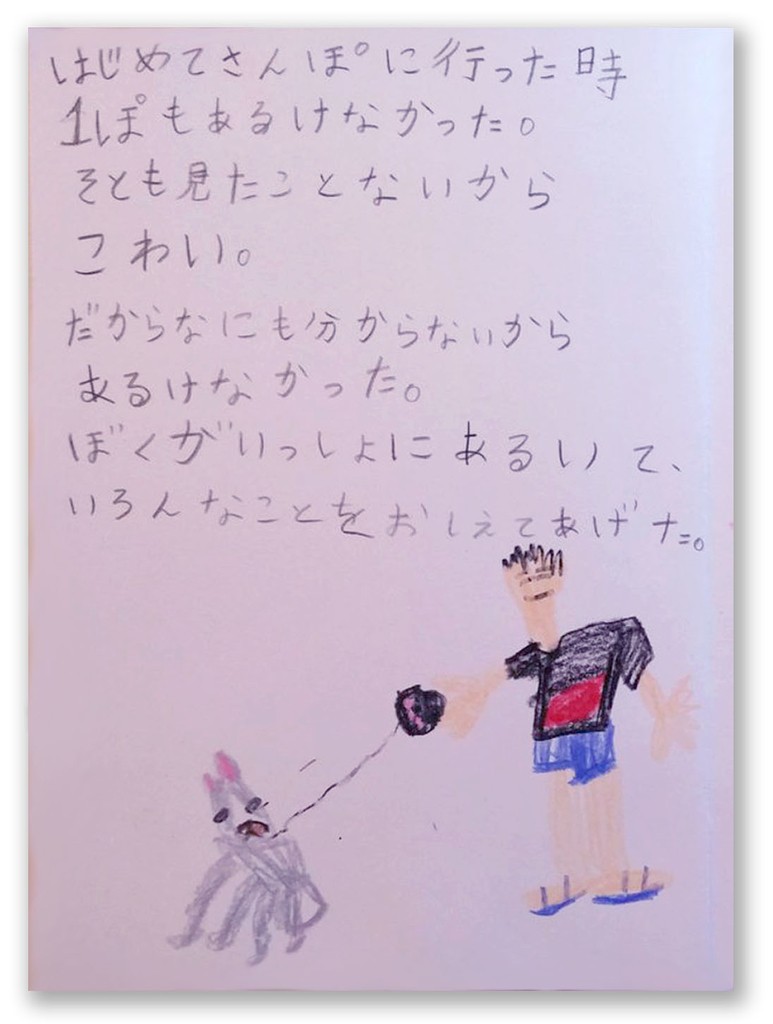 はじめてさんぽに行った時
1ぽもあるけなかった。
そとも見たことないから
こわい。
だからなにも分からないから
あるけなかった。
ぼくがいっしょにあるいて、
いろんなことをおしえてあげた。